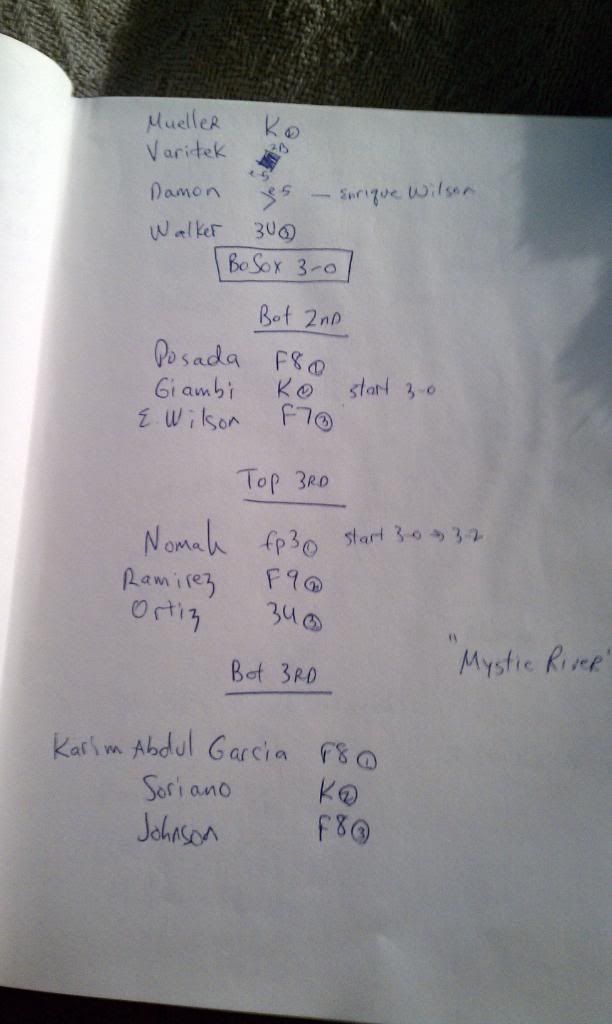 Mueller K②
Varitek 2B
Damon >e5 — Enrique Wilson
Walker 3U③
BoSox 3-0
Bot 2nd
Posada F8①
Giambi K② start 3-0
E. Wilson F7③
Top 3RD
Nomah fp3① start 3-0 → 3-2
Ramirez F9②
Ortiz 3U③
"Mystic River"
Bot 3RD
Karim Abdul Garcia F8①
Soriano K②
Johnson F8③